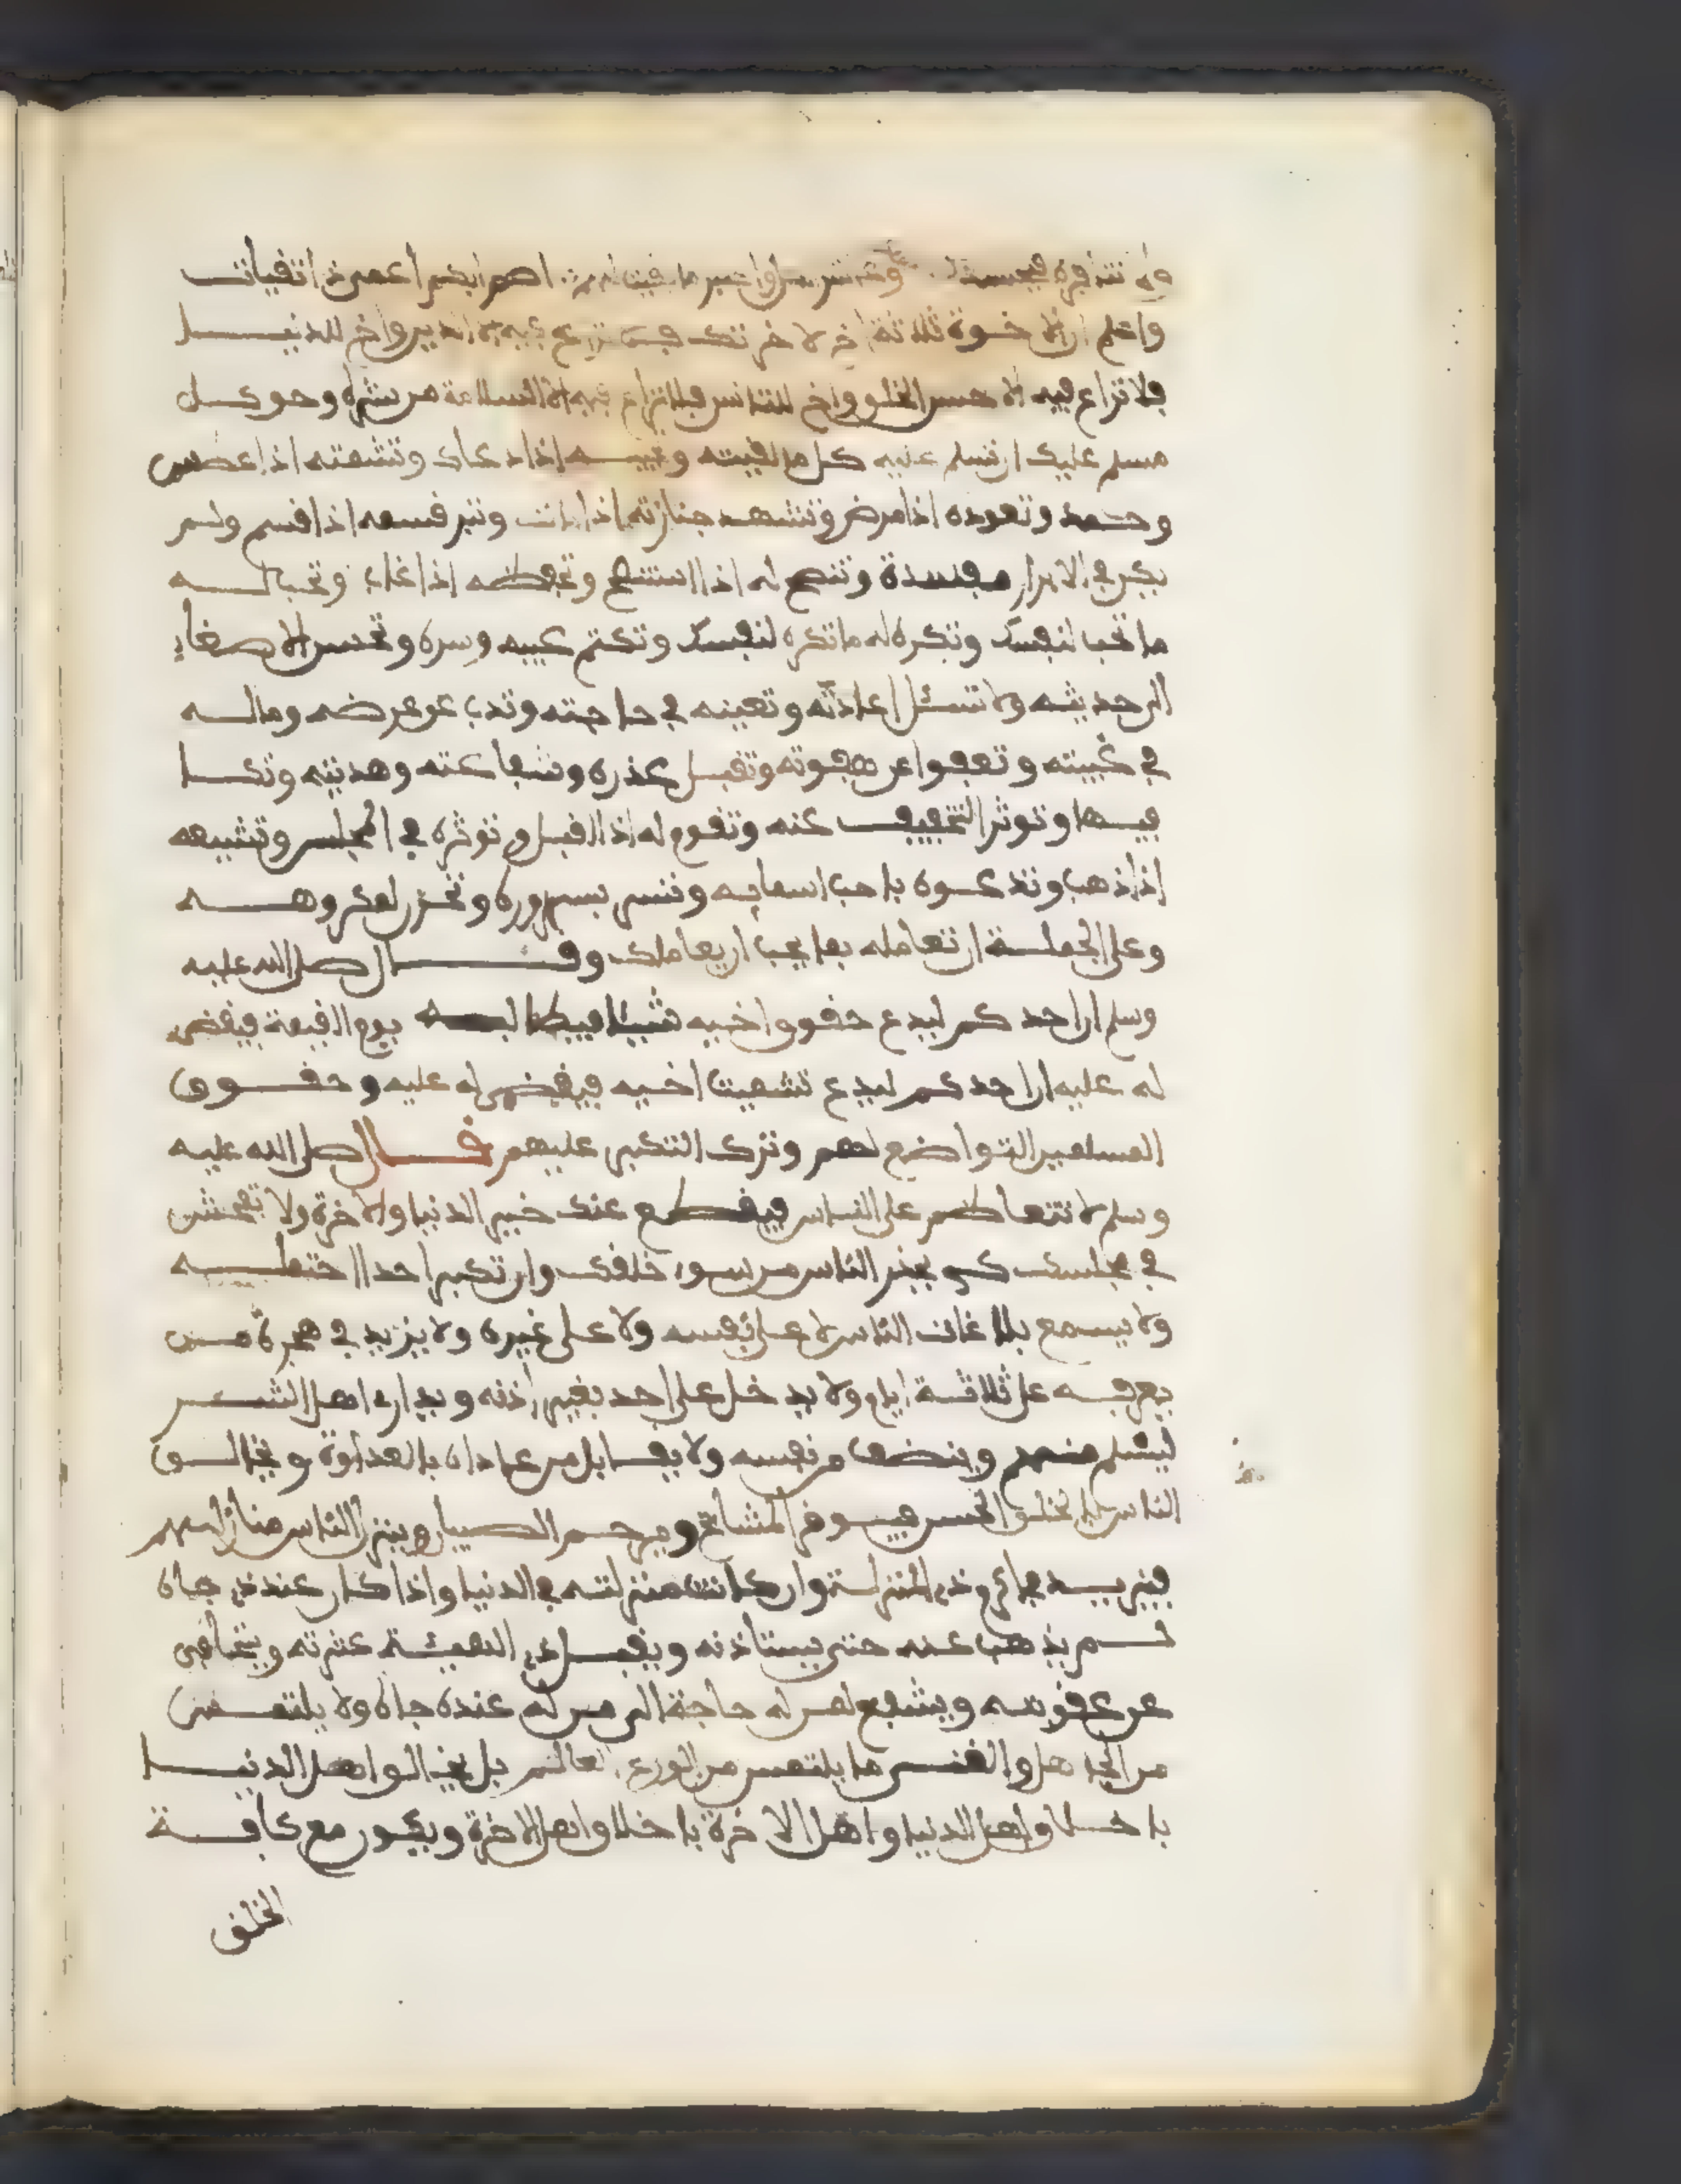 واعلم ان الاخوة ثلاثة اخ لاخرتك فلا تراع فيه الا الدين واخ للدنيا
فلا تراع فيه الا حسن الخلق واخ للتانس فلا تراع فيه الا السلامة من شره وحق كل
مسلم عليك ان تسلم عليه كل ما لقيته وتجيبه اذا دعاك وتشمته اذا عطس
وحمد وتعوده اذا مرض وتشهد جنازته اذا مات وتبر قسمه اذا اقسم ولم
يكن في الابرار مفسدة وتنصح له اذا استنصح وتحفظه اذا غاب وتحب له
ما تحب لنفسك وتكره له ما تكره لنفسك وتكتم عيبه وسره وتحسن الاصغاء
الى حديثه ولا تسئل اعادته وتعينه في حاجته وتذب عن عرضه وماله
في غيبته وتعفوا عن هفوته وتقبل عذره وشفاعته وهديته وتكا
فيها وتوثر التخفيف عنه وتقوم له اذا اقبل وتوثره في المجلس وتشيعه
اذا ذهب وتدعوه باحب اسمايه وتسر بسروره وتحزن لمكروهه
وعلى الجملة ان تعامله بما يحب ان يعاملك وقال صلى الله عليه
وسلم ان احدكم ليدع حقوق اخيه شيئا فيطالبه يوم القيمة فيقضى
له عليه ان احدكم ليدع تشميت اخيه فيقضى له عليه وحقوق
المسلمين التواضع لهم وترك التكبر عليهم قال صلى الله عليه
وسلم لا تتعاظم على الناس فيقطع عنك خير الدنيا والاخرة ولا تفحش
في مجلسك كي يحذر الناس من سوء خلقك وان تكبر احد احتمله
ولا يسمع بلاغات الناس لا على نفسه ولا على غيره ولا يزيد في هجرة من
يعرفه على ثلاثة ايام ولا يدخل على احد بغير اذنه ويداري اهل الشر
ليسلم منهم وينصف من نفسه ولا يقابل من عاداه بالعداوة ويخالق
الناس بالخلق الحسن فيوقر المشايخ ويرحم الصبيان وينزل الناس منازلهم
فيزيد في اكرم ذي المنزلة وان كانت منزلته في الدنيا واذا كان عند ذي جاه
لم يذهب عنه حتى يستاذنه ويقبل ذي الهيئة عثرته ويتجافى
عن عقوبته ويشفع لمن له حاجة الى من له عنده جاه ولا يلتمس
من الجاهل والغنى ما يلتمس من الورع العالم بل يخالق اهل الدنيا
باخلاق اهل الدنيا واهل الاخرة باخلاق اهل الاخرة ويكون مع كافة
الخلق